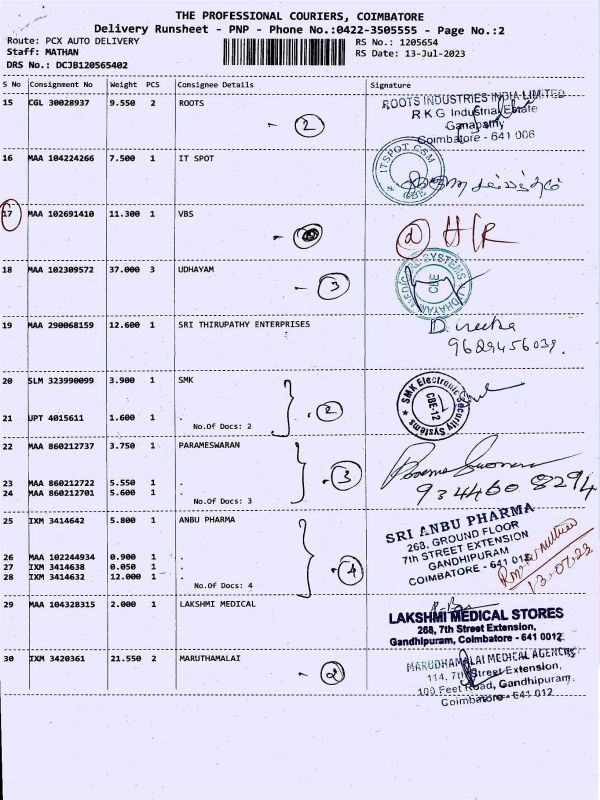 THE PROFESSIONAL COURIERS, COIMBATORE
Delivery Runsheet - PNP - Phone No.:0422-3505555 - Page No.:2
Route: PCX AUTO DELIVERY
RS No.: 1205654
Staff: MATHAN
RS Date: 13-Jul-2023
DRS No.: DCJB120565402
S No Consignment No Weight PCS Consignee Details Signature
15 CGL 30028937 9.550 2 ROOTS
- 2
ROOTS INDUSTRIES INDIA LIMITED
R K G Industrial Estate
Ganapathy
Coimbatore - 641 006
16 MAA 104224266 7.500 1 IT SPOT
ITSPOT CSM
CBE
17 MAA 102691410 11.300 1 VBS
18 MAA 102309572 37.000 3 UDHAYAM
- 3
UDHAYAM MEDICAL SYSTEMS
CBE
19 MAA 290068159 12.600 1 SRI THIRUPATHY ENTERPRISES
9629456039.
20 SLM 323990099 3.900 1 SMK
21 UPT 4015611 1.600 1 .
No.Of Docs: 2
- 2
SMK Electronic Security Systems
CBE-12
22 MAA 860212737 3.750 1 PARAMESWARAN
23 MAA 860212722 5.550 1 .
24 MAA 860212701 5.600 1 .
No.Of Docs: 3
- 3
934460 8294
25 IXM 3414642 5.800 1 ANBU PHARMA
26 MAA 102244934 0.900 1 .
27 IXM 3414638 0.050 1 .
28 IXM 3414632 12.000 1 .
No.Of Docs: 4
- 4
SRI ANBU PHARMA
268, GROUND FLOOR
7th STREET EXTENSION
GANDHIPURAM
COIMBATORE - 641 012
13.07.23
29 MAA 104328315 2.000 1 LAKSHMI MEDICAL
LAKSHMI MEDICAL STORES
268, 7th Street Extension,
Gandhipuram, Coimbatore - 641 0012
30 IXM 3420361 21.550 2 MARUTHAMALAI
- 2
MARUDHAMALAI MEDICAL AGENCIES
114, 7th Street Extension,
100 Feet Road, Gandhipuram,
Coimbatore - 641 012